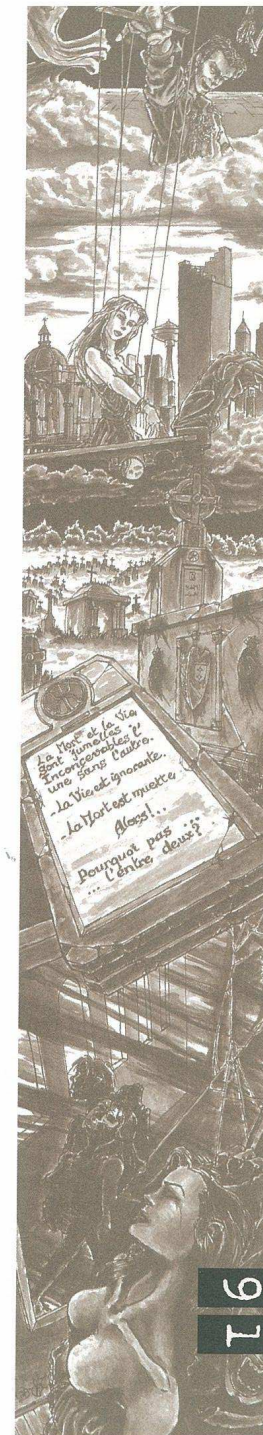 La Mort et la Vie
sont jumelles
inconcevables l'
une sans l'autre.
- La Vie est ignorante.
- La Mort est muette
Alors!...
Pourquoi pas ...
... l'entre deux?
91